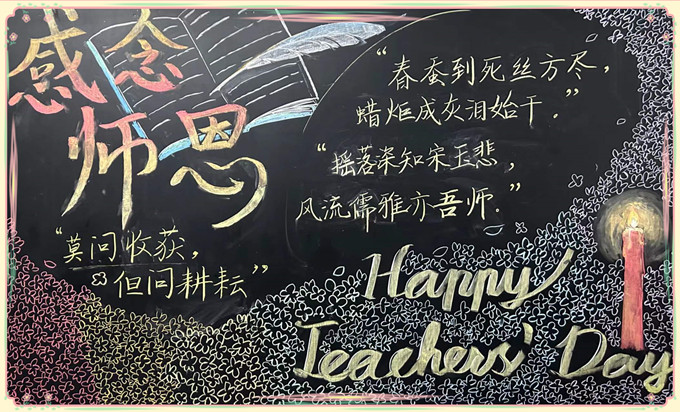 感念
师恩
“春蚕到死丝方尽，
蜡炬成灰泪始干.”
“摇落深知宋玉悲，
风流儒雅亦吾师.”
“莫问收获，
但问耕耘”
Happy
Teachers' Day